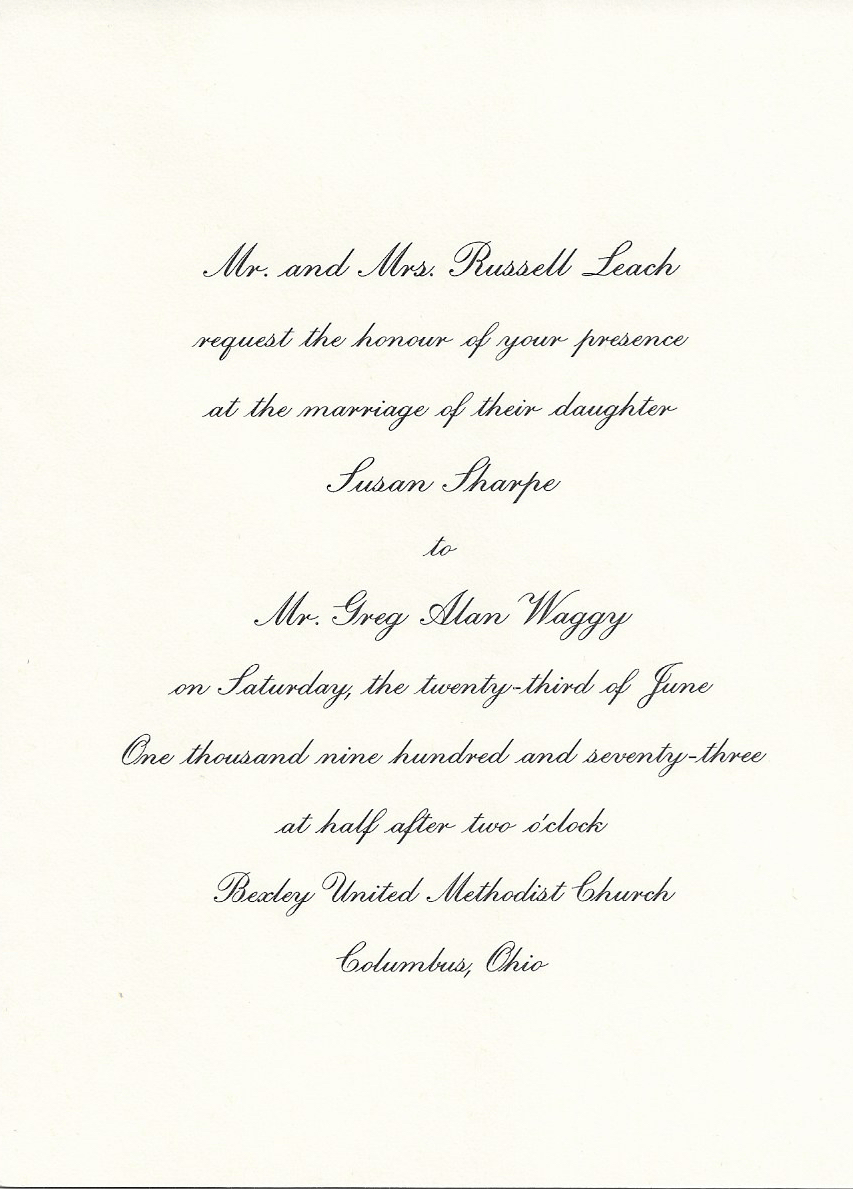 Mr. and Mrs. Russell Leach
request the honour of your presence
at the marriage of their daughter
Susan Sharpe
to
Mr. Greg Alan Waggy
on Saturday, the twenty-third of June
One thousand nine hundred and seventy-three
at half after two o'clock
Bexley United Methodist Church
Columbus, Ohio